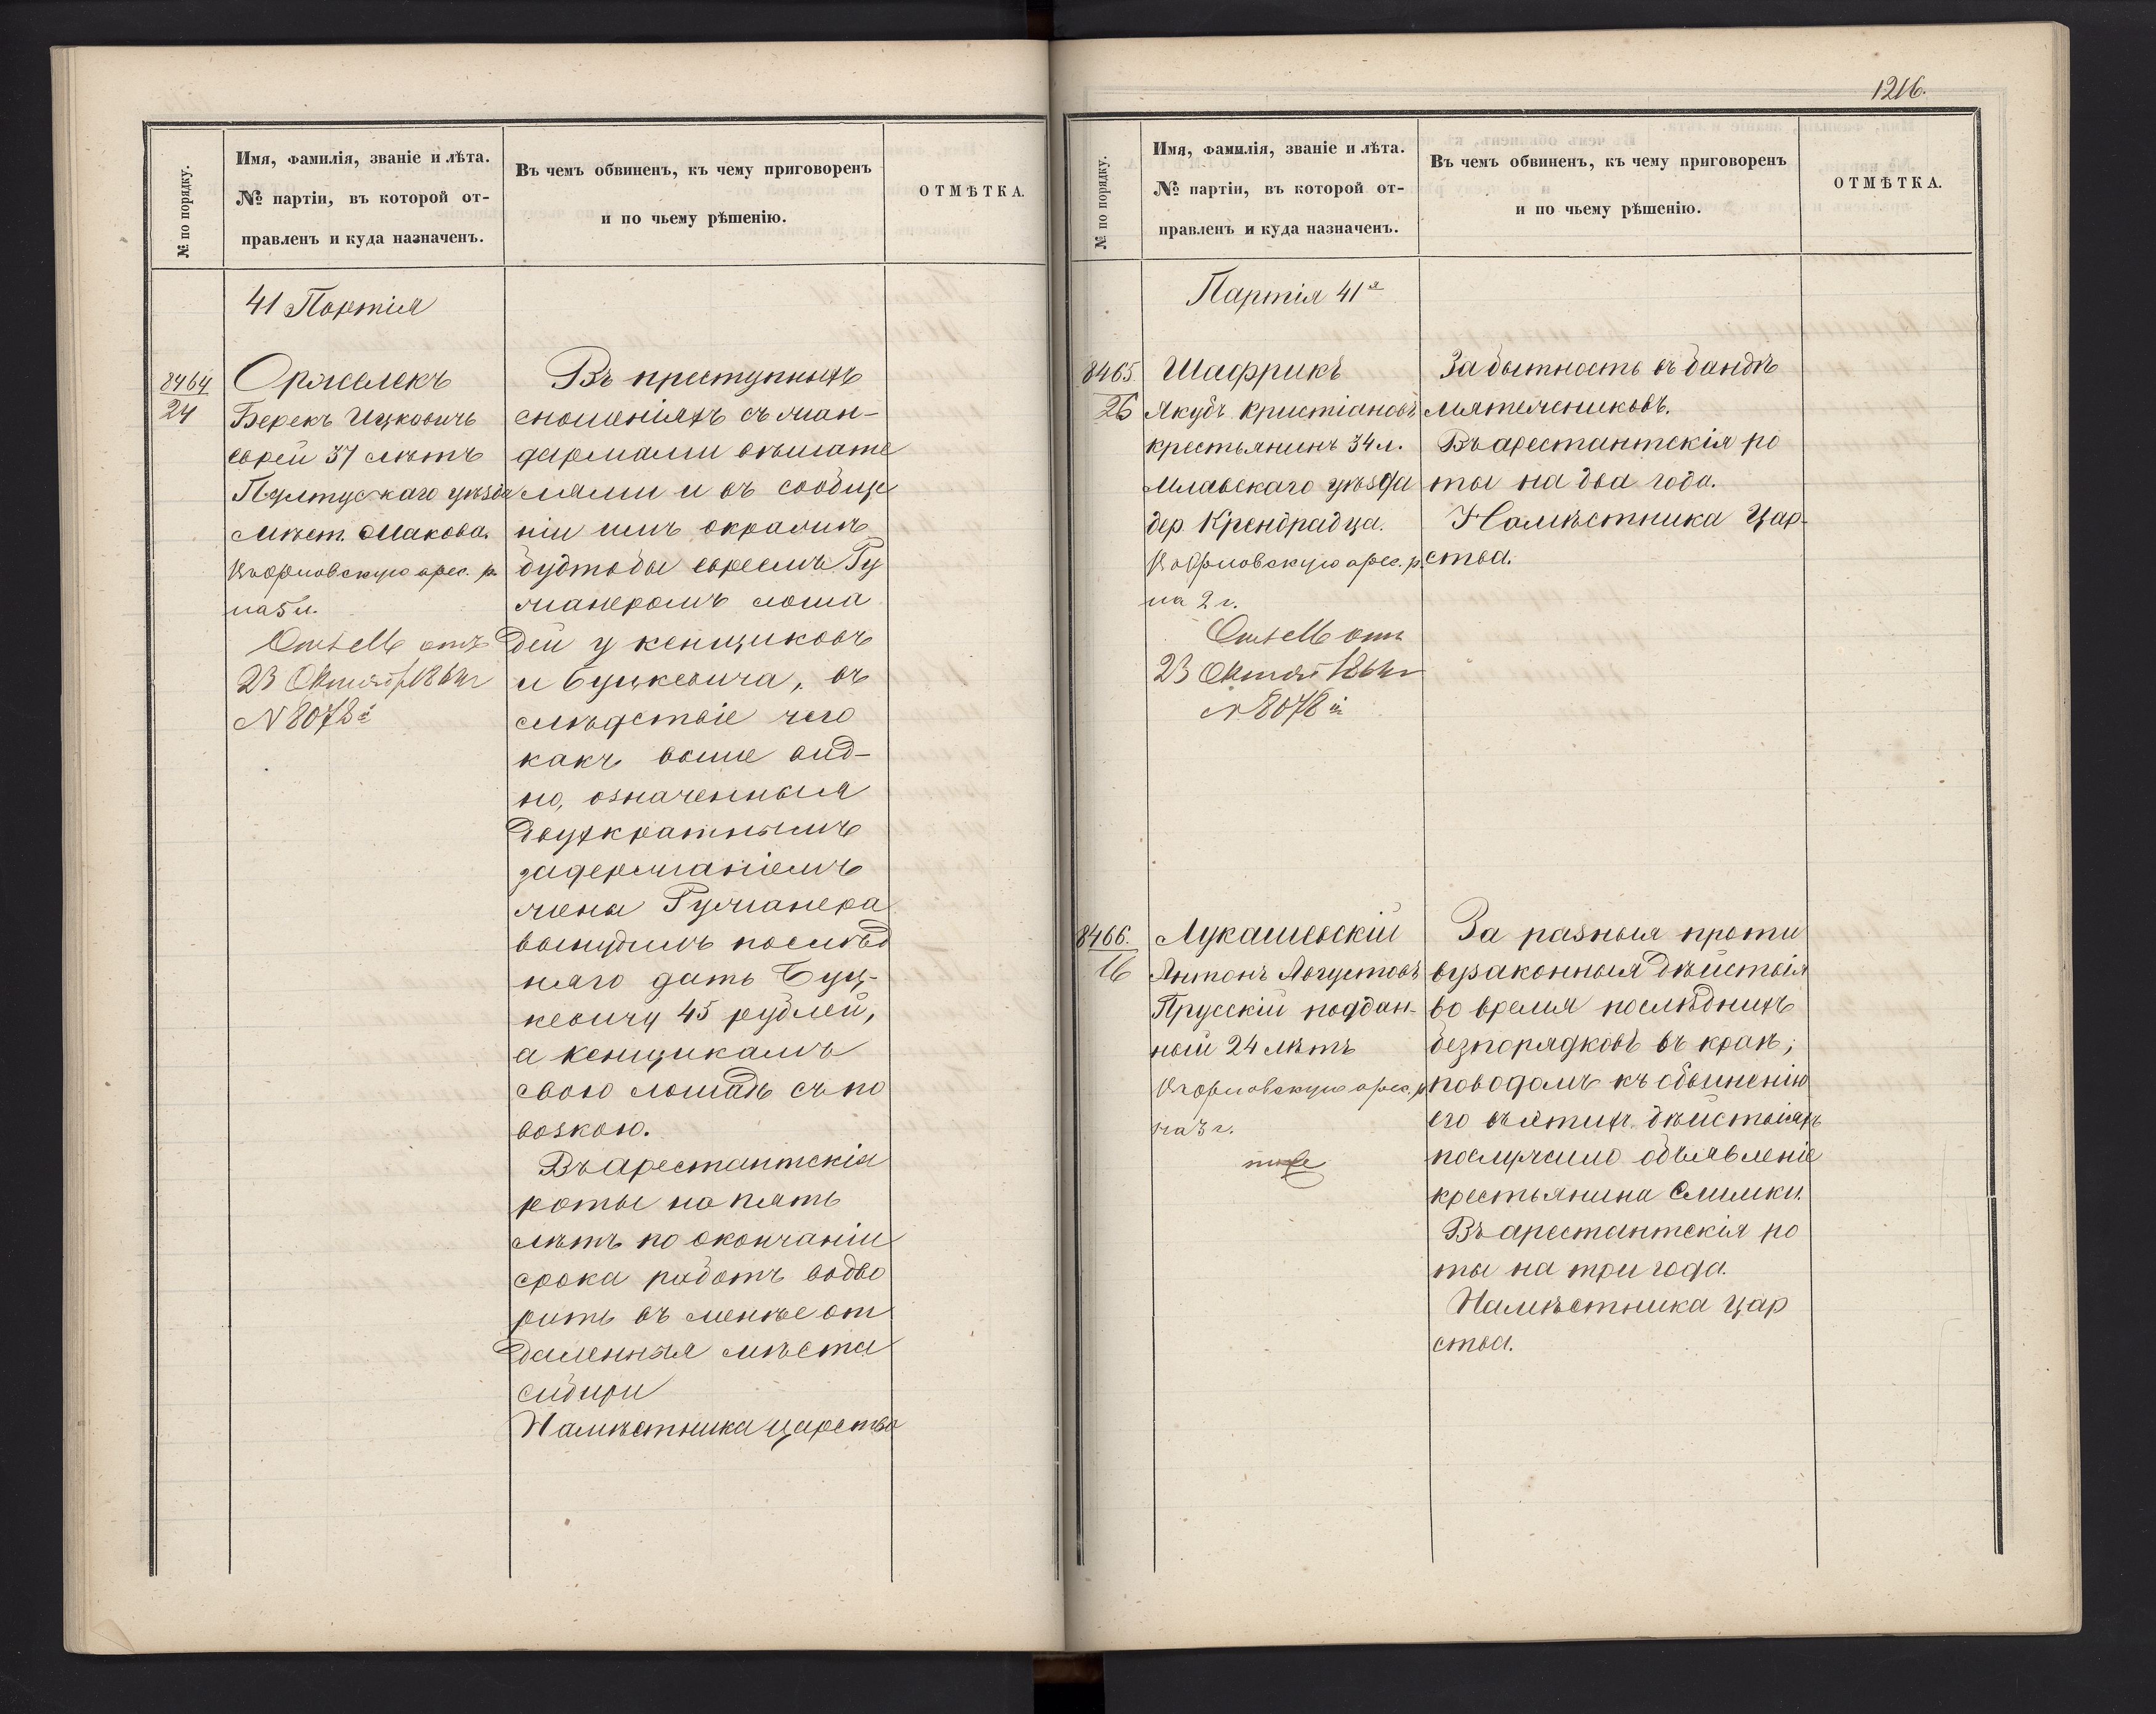 1216.
№ по порядку.
Имя, фамилія, званіе и лѣта.
№ партіи, въ которой от-
правленъ и куда назначенъ.
Въ чемъ обвиненъ, къ чему приговоренъ
и по чьему рѣшенію.
ОТМѢТКА.
41 Партія
8464
24
Оржелекъ
Берекъ Ицковичъ
еврей 37 лѣтъ
Пултускаго уѣзда
Мѣст. Макова.
Въ Орловскую арес. р.
на 5 л.
От. зем. отъ
23 Октябр. 1864 г
N 8078
Въ преступныхъ
сношеніяхъ съ жан-
дармами вѣшате
лями и въ сообще
ніи имъ о кражѣ
будтобы евреемъ Гу
манеромъ лоша
дей у Кенщиковъ
и Буцкевича, въ
слѣдствіе чего
какъ выше вид-
но, означенныя
двухкратнымъ
задержаніемъ
жены Гуманера
вынудилъ послѣд
няго дать Буц-
кевичу 45 рублей,
а Кенщикамъ
свою лошадь съ по
возкою.
Въ арестантскія
роты на пять
лѣтъ по окончаніи
срока работъ водво
рить въ менѣе от
даленныя мѣста
Сибири
Намѣстника царства
№ по порядку.
Имя, фамилія, званіе и лѣта.
№ партіи, въ которой от-
правленъ и куда назначенъ.
Въ чемъ обвиненъ, къ чему приговоренъ
и по чьему рѣшенію.
ОТМѢТКА.
Партія 41я
8465.
26
Шафрикъ
Якубъ Кристіановъ
крестьянинъ 34 л.
Млавскаго уѣзда
дер. Крендрадца.
Въ Орловскую арес. р.
на 2 г.
отъ
23 Октяб. 1864 г
N 8078
За бытность въ бандѣ
мятежниковъ.
Въ арестантскія ро
ты на два года.
Намѣстника Цар-
ства.
8466.
16
Лукашевскій
Антонъ Августовъ
Прусскій поддан-
ный 24 лѣтъ
Въ Орловскую арес. р.
на 3 г.
тоже
За разныя проти
вузаконныя дѣйствія
во время послѣднихъ
безпорядковъ въ краѣ;
поводомъ къ обвиненію
его въ этихъ дѣйствіяхъ
послужило объявленіе
крестьянина Слимки.
Въ арестантскія ро
ты на три года.
Намѣстника цар
ства.